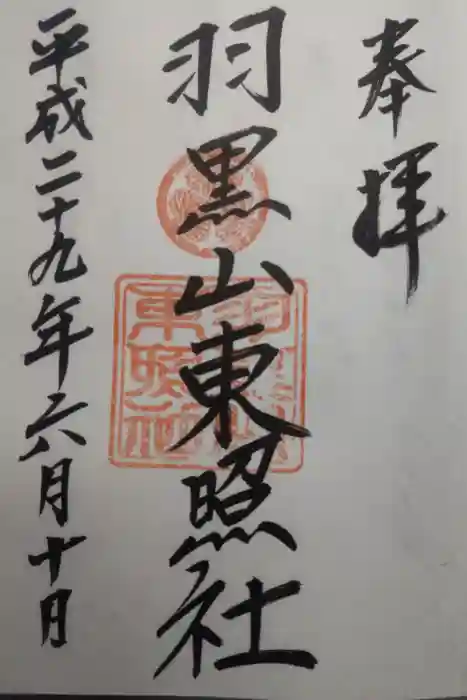 奉拝
羽黒山東照社
平成二十九年六月十日